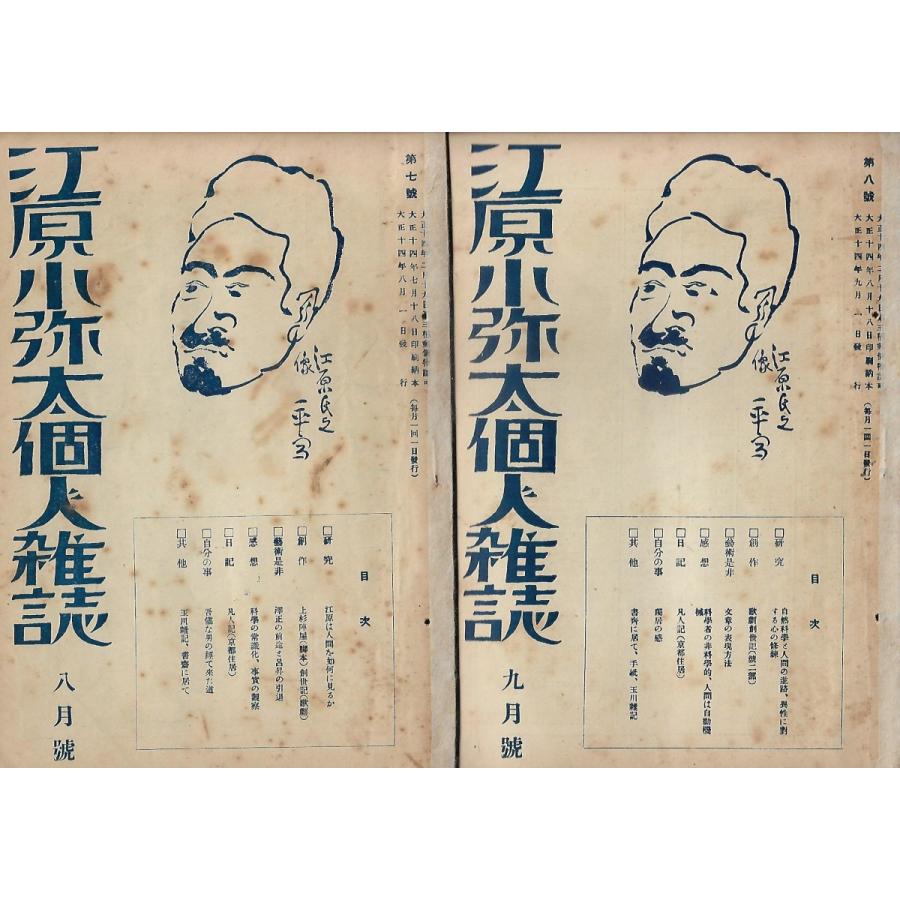 第七號
大正十四年七月十八日印刷納本
大正十四年八月一日發行
(毎月一回一日發行)
江原氏之
像
一平写
江原小弥太個人雑誌
八月號
目次
□研究 江原は人間を如何に見るか
□創作 上杉陣屋(脚本)創世記(歌劇)
□藝術是非 澤正の前途と呂昇の引退
□感想 科學の常識化、事實の觀察
□日記 凡人記(京都住居)
□自分の事 吾儘な男の經て來た道
□其他 玉川雜記、書齋に居て
第八號
大正十四年八月十八日印刷納本
大正十四年九月一日發行
(毎月一回一日發行)
江原氏之
像
一平写
江原小弥太個人雑誌
九月號
目次
□研究 自然科學と人間の進路、異性に對
する心の修練
□創作 歌劇創世記(號二部)
□藝術是非 文章の表現方法
□感想 科學者の非科學的、人間は自動機
械
□日記 凡人記(京都住居)
□自分の事 獨居の感
□其他 書齋に居て、手紙、玉川雜記